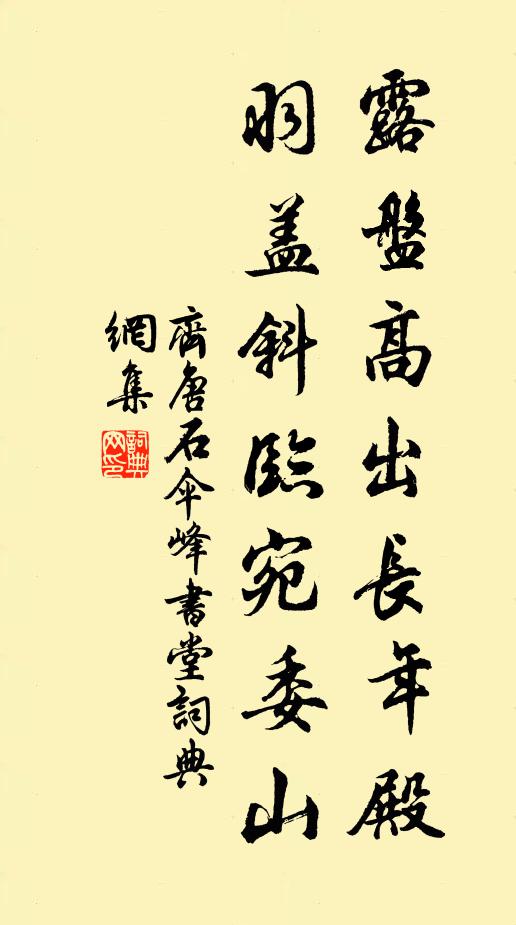 露盤高出長年殿
羽蓋斜臨宛委山
齊唐石傘峰書堂詞典
網集
詞典
网印